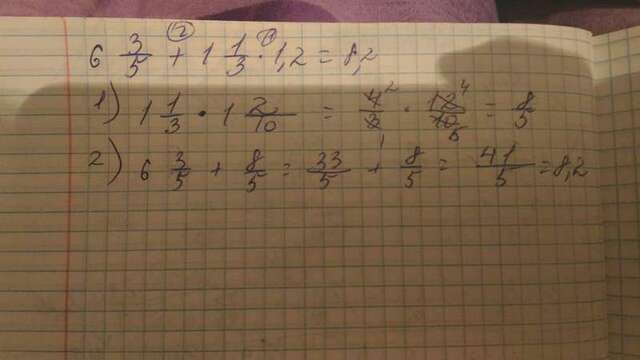 6 3/5 +② 1 1/3 ·① 1,2 = 8,2
1) 1 1/3 · 1 2/10 = 4²/3 · 12⁴/10₅ = 8/5
2) 6 3/5 + 8/5 = 33/5 + 8/5 = 41/5 = 8,2